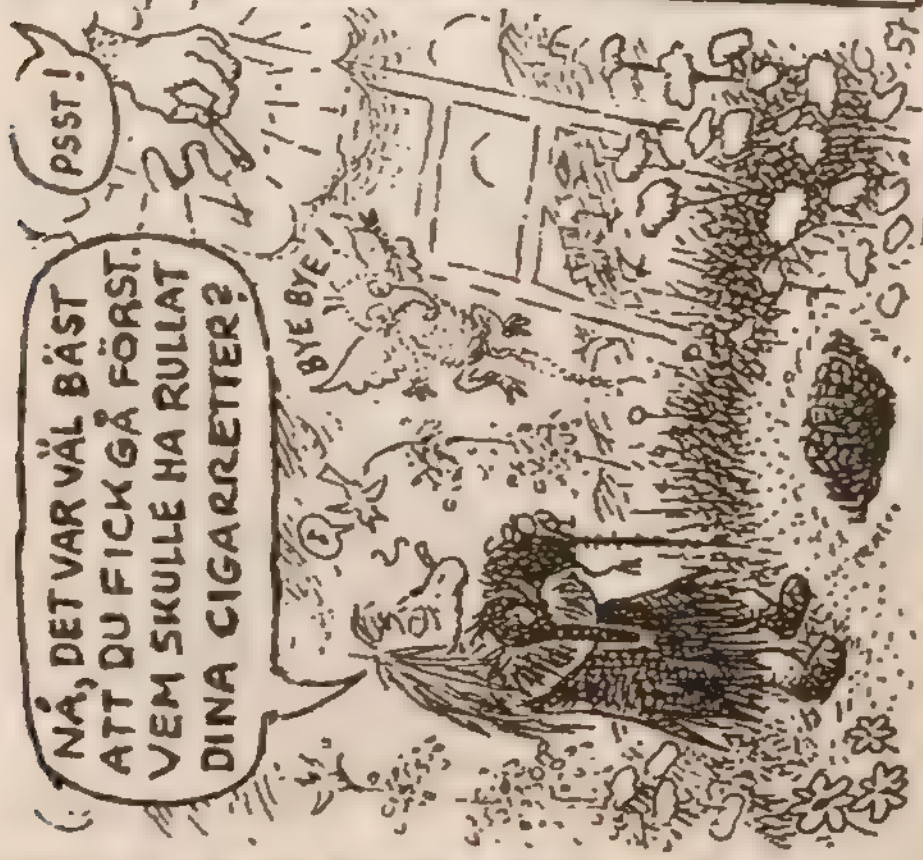 NÅ, DET VAR VÄL BÄST
ATT DU FICK GÅ FÖRST.
VEM SKULLE HA RULLAT
DINA CIGARRETTER?
PSST!
BYE BYE!